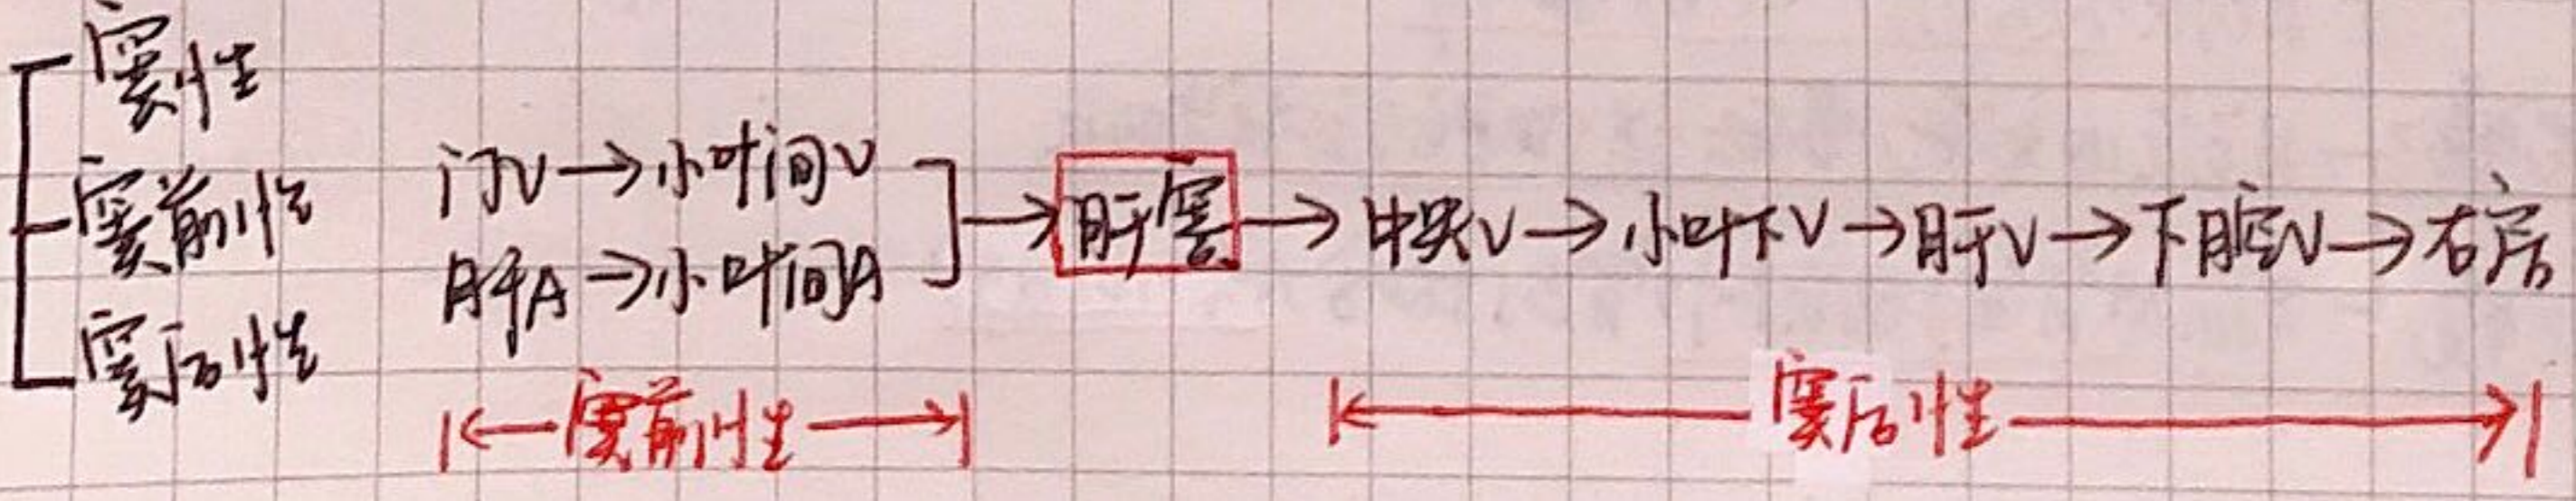 窦性
窦前性
窦后性
门V→小叶间V
肝A→小叶间A
→肝窦→中央V→小叶下V→肝V→下腔V→右房
窦前性
窦后性